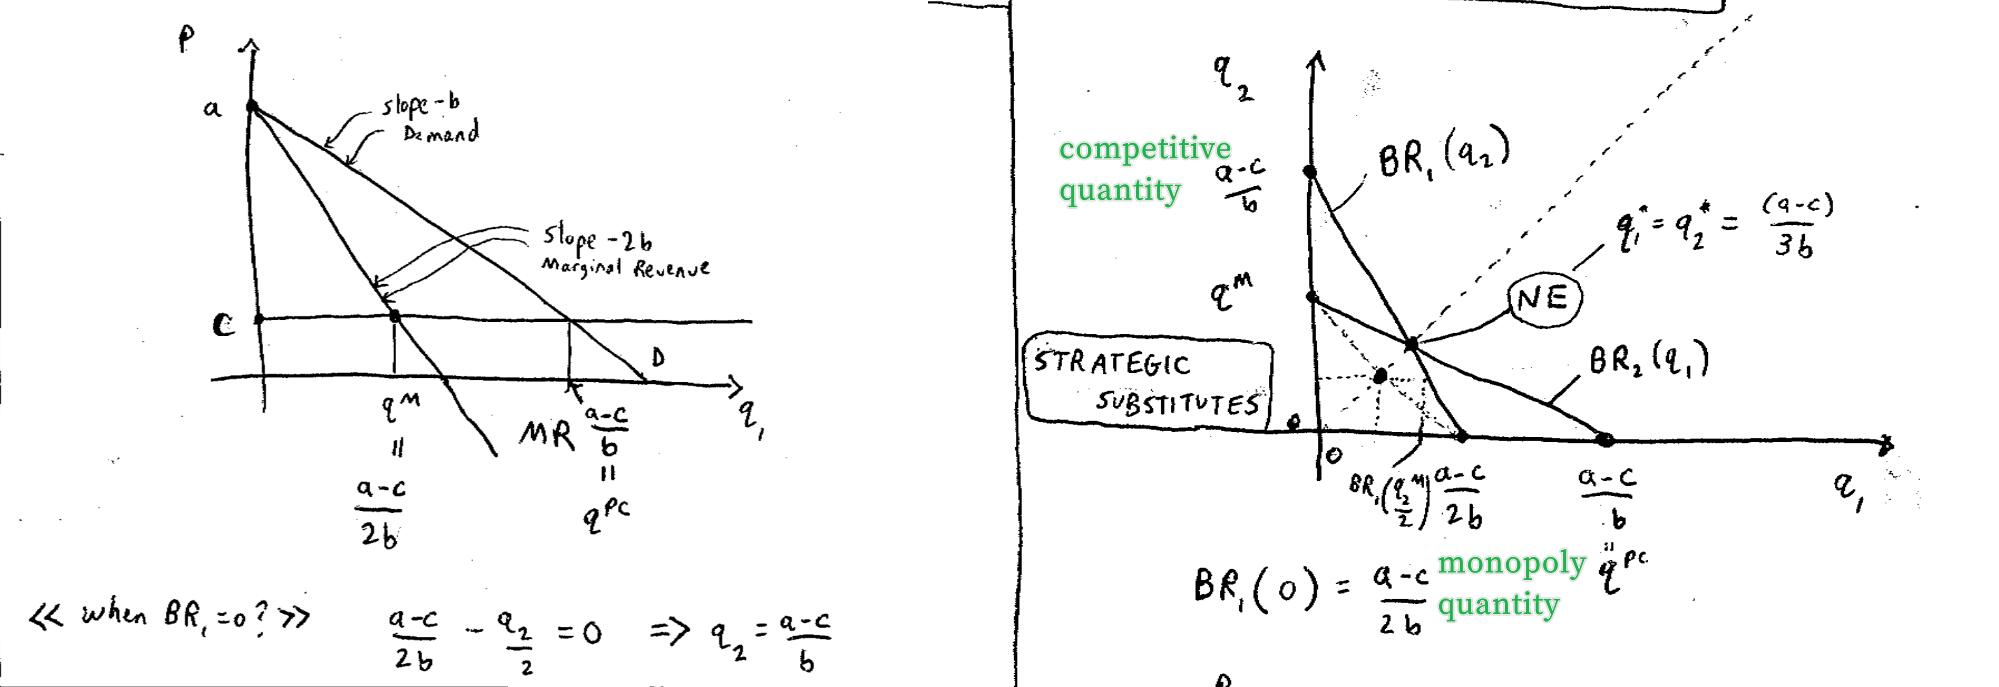 P
a
slope -b
Demand
slope -2b
Marginal Revenue
C
D
q₁
qᴹ
=
a-c
2b
MR
a-c
b
=
qᴾᶜ
<< when BR₁=0? >> a-c/2b - q₂/2 = 0 => q₂ = a-c/b
q₂
competitive
quantity
a-c
b
BR₁(q₂)
q₁* = q₂* = (a-c)/3b
qᴹ
NE
STRATEGIC
SUBSTITUTES
BR₂(q₁)
0
0
BR₁(q₂ᴹ/2)
a-c
2b
a-c
b
=
qᴾᶜ
q₁
BR₁(0) = a-c/2b
monopoly
quantity